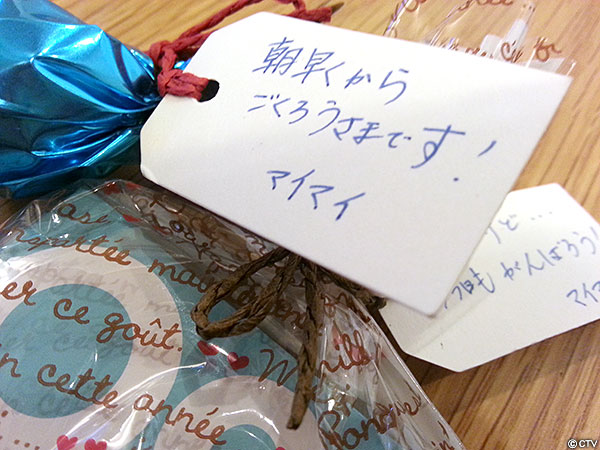 朝早くから
ごくろうさまです!
マイマイ
ど....
今日も がんばろう!
マイマ
mpartée
er ce goût.
n cette année
© CTV